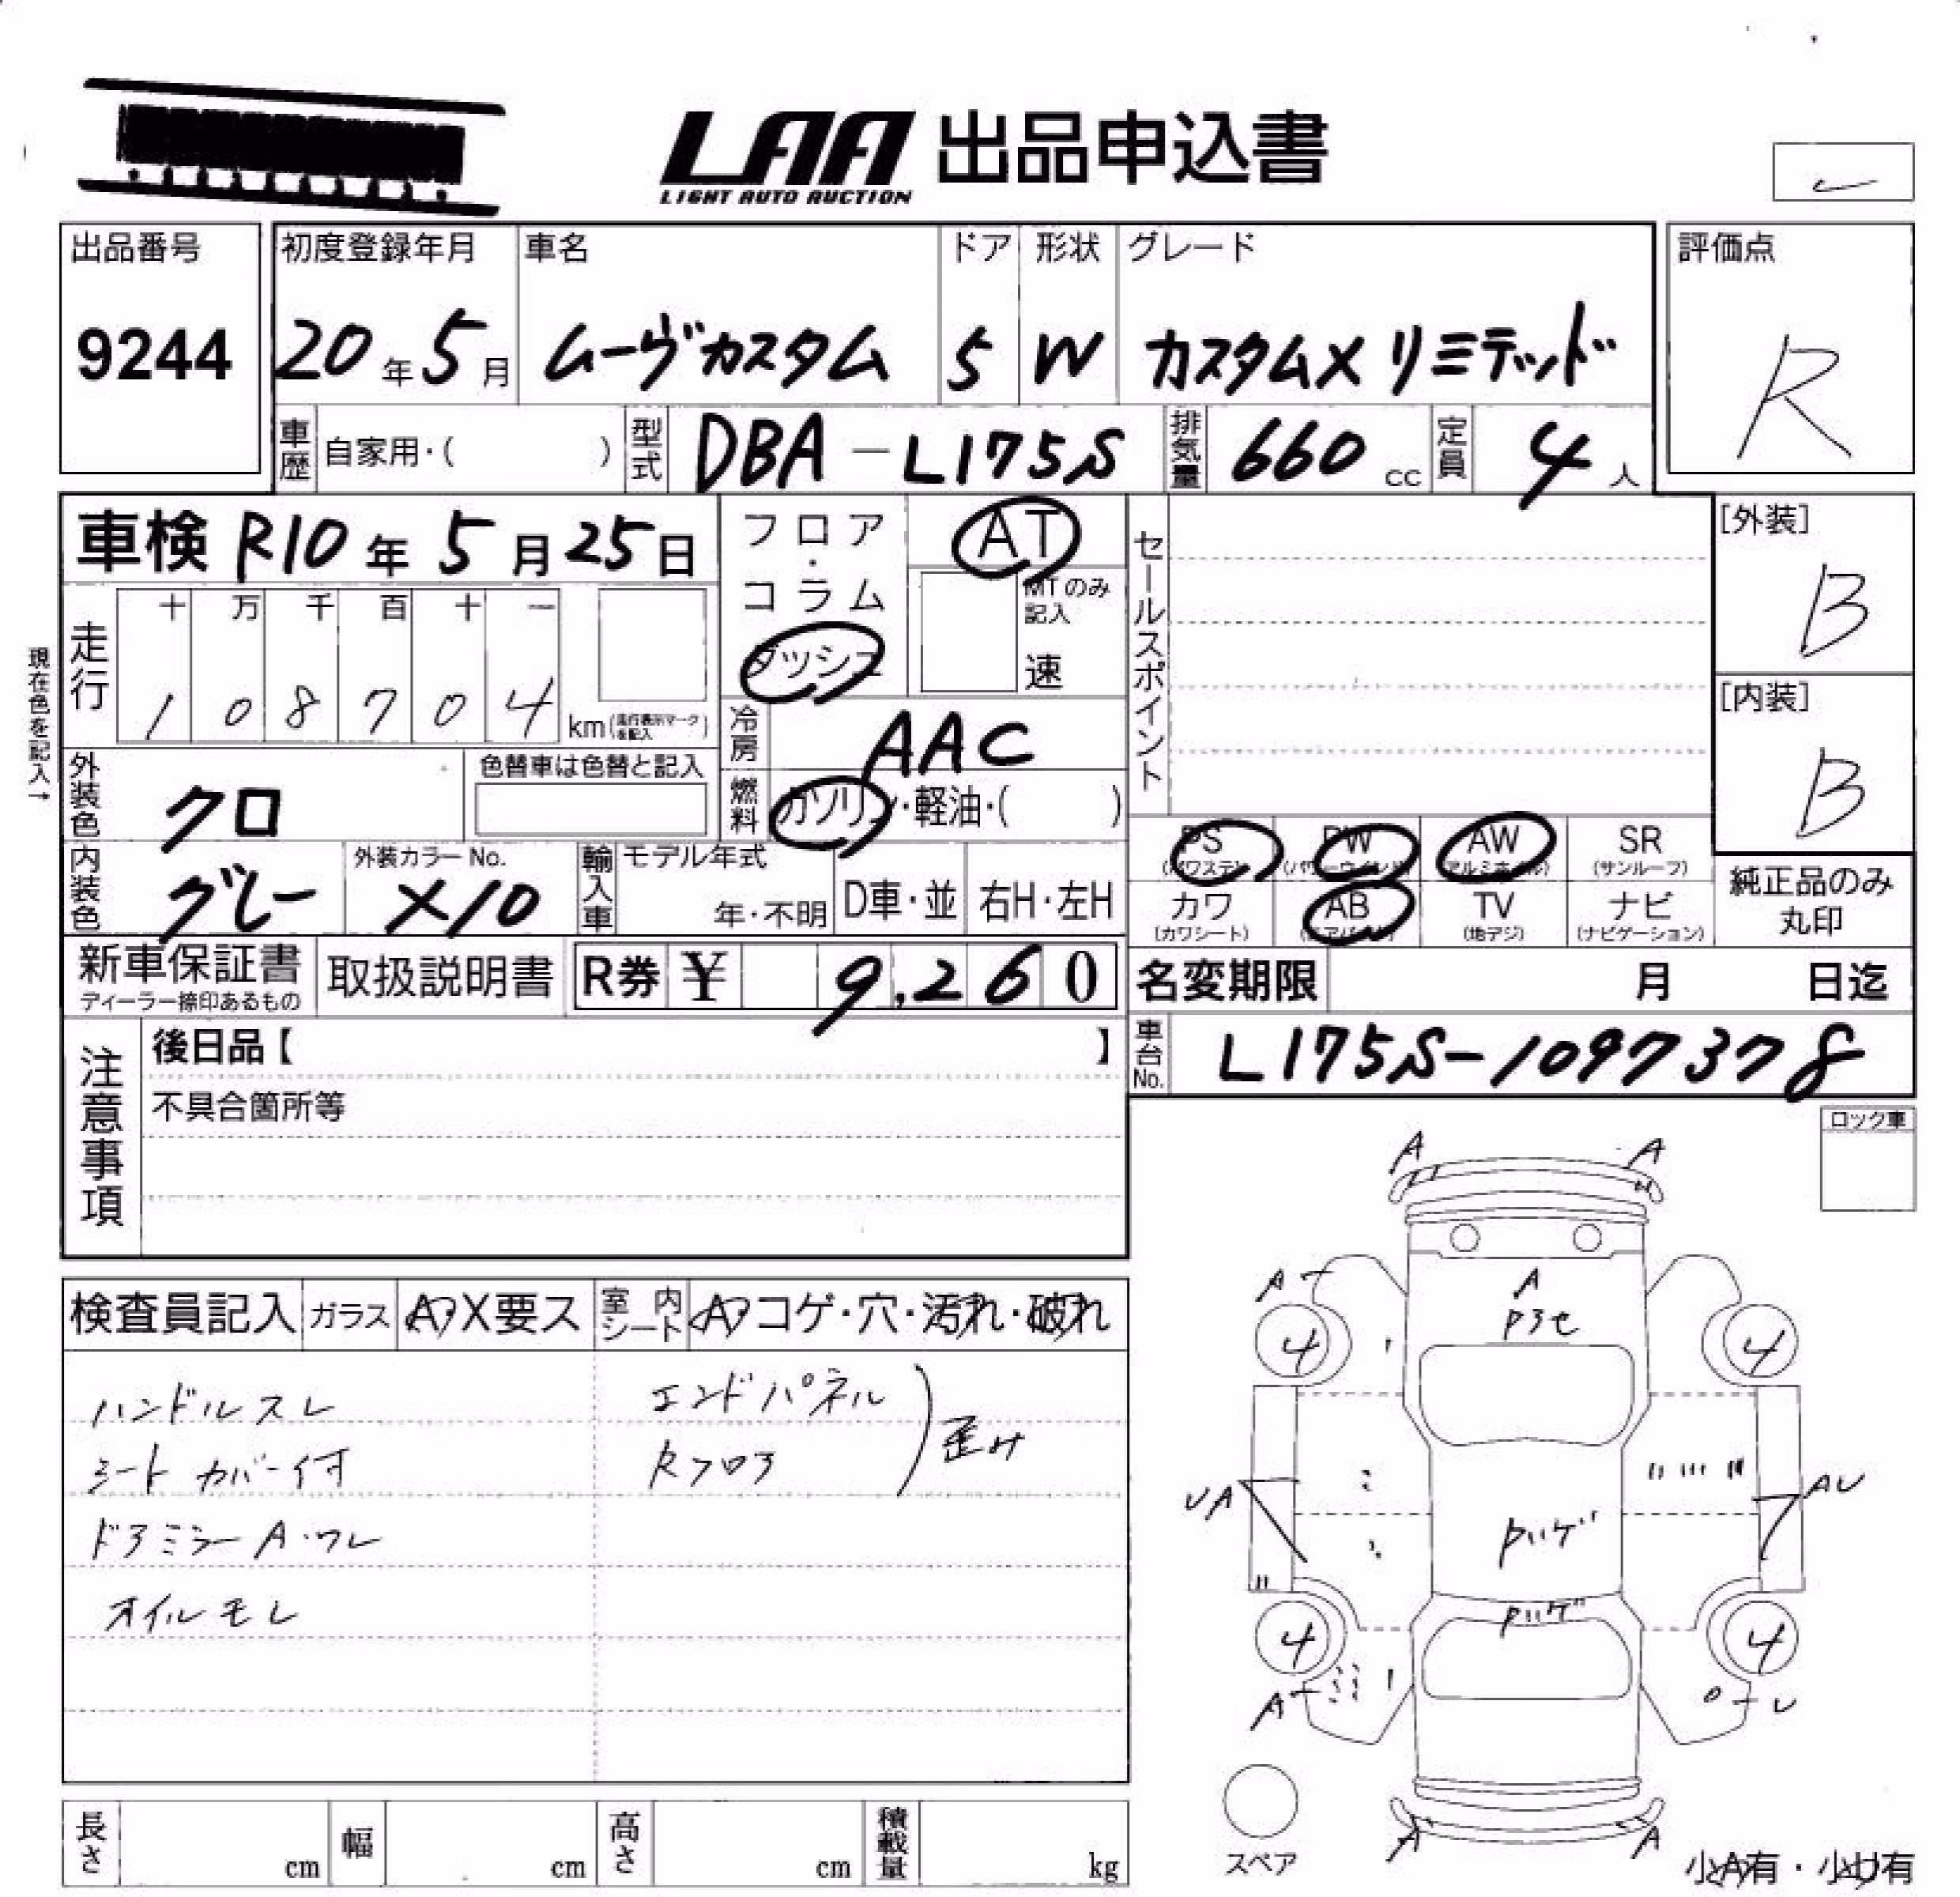 LAA 出品申込書
LIGHT AUTO AUCTION
出品番号 初度登録年月 車名 ドア 形状 グレード 評価点
9244 20年5月 ムーヴカスタム 5 W カスタムX リミテッド R
車歴 自家用・( ) 型式 DBA-L175S 排気量 660cc 定員 4人
車検 R10年5月25日 フロア・コラム ダッシュ AT セールスポイント [外装]
MTのみ記入 速 B
現在色を記入→ 走行 十 万 千 百 十 一
1 0 8 7 0 4 km(走行表示マークを記入) [内装]
冷房 AAC B
外装色 クロ 色替車は色替と記入 燃料 ガソリン・軽油・( )
PS (パワステ) PW (パワーウインド) AW (アルミホイル) SR (サンルーフ)
内装色 グレー 外装カラーNo. X10 輸入車 モデル年式 年・不明 D車・並 右H・左H
カワ (カワシート) AB (エアバッグ) TV (地デジ) ナビ (ナビゲーション) 純正品のみ丸印
新車保証書 ディーラー捺印あるもの 取扱説明書 R券 ¥ 9,260 名変期限 月 日迄
注意事項 後日品【 】 車台No. L175S-1097378
不具合箇所等
ロック車
検査員記入 ガラス A・X要ス 室内シート A・コゲ・穴・汚れ・破れ
ハンドルスレ エンドパネル
シートカバー付 Rフロア 歪み
ドアミラーA・ワレ
オイルモレ
A A
A A
Pアセ
4 4
UA AU
Pハゲ
Pハゲ
4 4
A
A A
スペア
小A有・小U有
長さ cm 幅 cm 高さ cm 積載量 kg